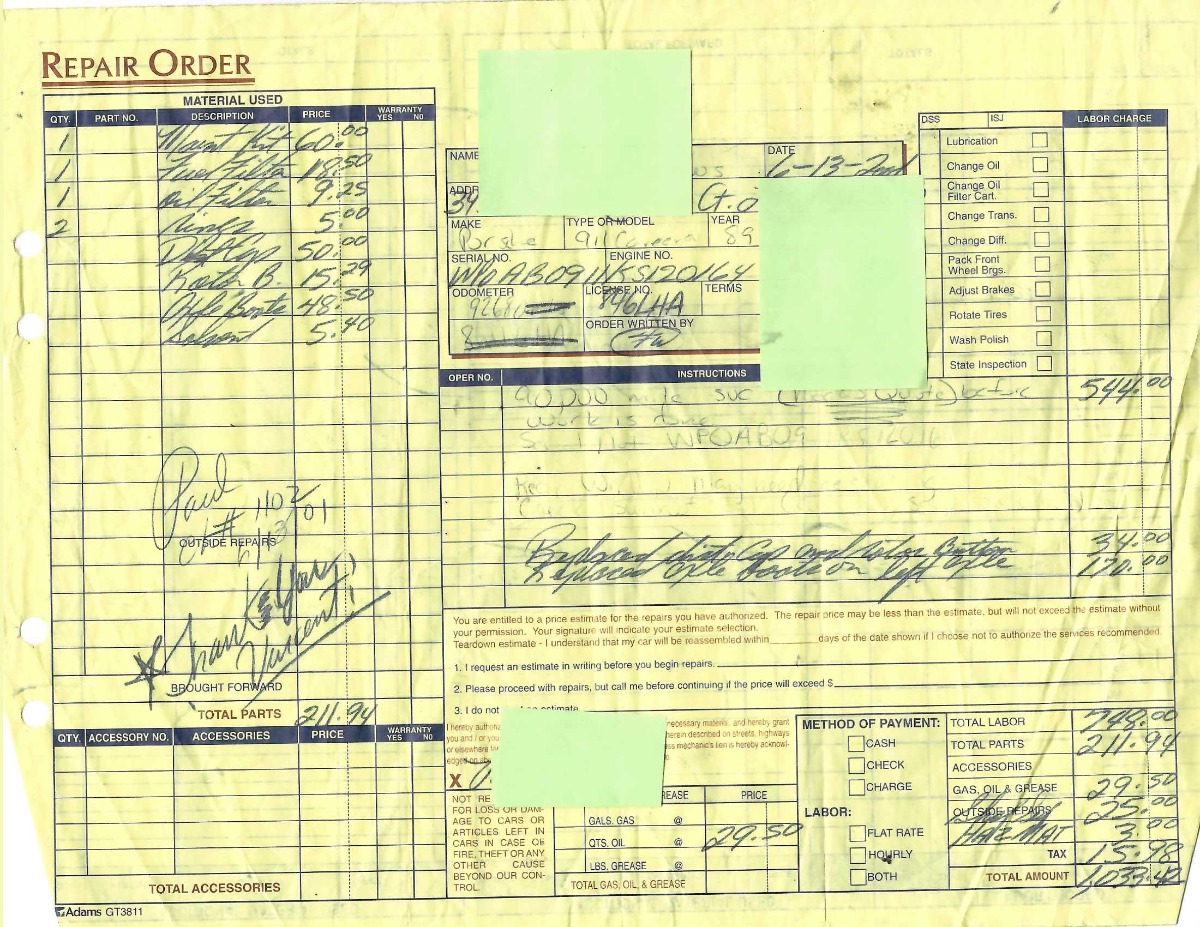 REPAIR ORDER
MATERIAL USED
QTY. PART NO. DESCRIPTION PRICE WARRANTY YES NO
1 Maint Kit 60.00
1 Fuel Filter 18.50
1 Oil Filter 9.25
2 Rings 5.00
Dist Cap 50.00
Rotor B. 15.29
Axle Boots 48.50
Solvent 5.40
Paul
1102
OUTSIDE REPAIRS
6/13/01
Thank You,
Vincent!
BROUGHT FORWARD
TOTAL PARTS 211.94
QTY. ACCESSORY NO. ACCESSORIES PRICE WARRANTY YES NO
TOTAL ACCESSORIES
Adams GT3811
NAME
DATE
6-13-2001
ADDR
39
MAKE TYPE OR MODEL YEAR
Porsche 911 Carrera 89
SERIAL NO. ENGINE NO.
WPOAB0911KS120164
ODOMETER LICENSE NO. TERMS
ORDER WRITTEN BY
DSS ISJ LABOR CHARGE
Lubrication
Change Oil
Change Oil Filter Cart.
Change Trans.
Change Diff.
Pack Front Wheel Brgs.
Adjust Brakes
Rotate Tires
Wash Polish
State Inspection
OPER NO. INSTRUCTIONS
90,000 mile svc (Needs Quote) before 544.00
work is done
WPOAB09
Replaced dist. Cap and rotor Button 34.00
Replaced axle boots on left axle 170.00
You are entitled to a price estimate for the repairs you have authorized. The repair price may be less than the estimate, but will not exceed the estimate without
your permission. Your signature will indicate your estimate selection.
Teardown estimate - I understand that my car will be reassembled within ______ days of the date shown if I choose not to authorize the services recommended.
1. I request an estimate in writing before you begin repairs.
2. Please proceed with repairs, but call me before continuing if the price will exceed $
3. I do not estimate.
I hereby authoriz necessary material, and hereby grant
you and / or you herein described on streets, highways
or elsewhere for ess mechanic's lien is hereby acknowl-
edged on abo
X
NOT RE
FOR LOSS OR DAM-
AGE TO CARS OR
ARTICLES LEFT IN
CARS IN CASE OF
FIRE, THEFT OR ANY
OTHER CAUSE
BEYOND OUR CON-
TROL.
REASE PRICE
GALS. GAS @
QTS. OIL @ 29.50
LBS. GREASE @
TOTAL GAS, OIL, & GREASE
METHOD OF PAYMENT:
CASH
CHECK
CHARGE
LABOR:
FLAT RATE
HOURLY
BOTH
TOTAL LABOR 748.00
TOTAL PARTS 211.94
ACCESSORIES
GAS, OIL & GREASE 29.50
OUTSIDE REPAIRS 25.00
HAZ MAT 3.00
TAX 15.98
TOTAL AMOUNT 1033.42